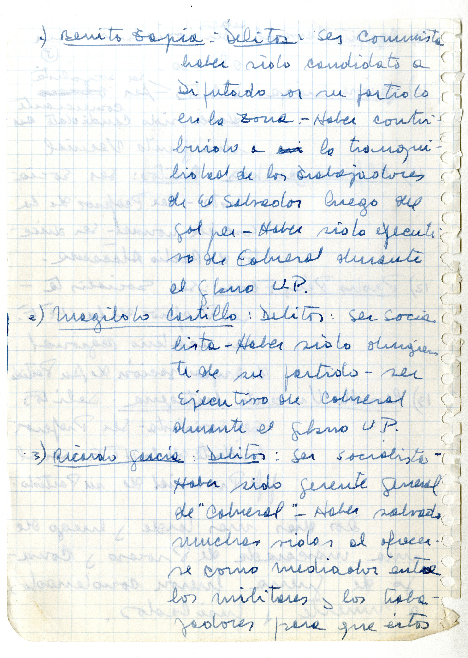 1) Benito Tapia.- Delitos: Ser comunista
haber sido candidato a
Diputado por su partido
en la zona.- Haber contri-
buido a la tranqui-
lidad de los trabajadores
de El Salvador luego del
golpe.- Haber sido ejecuti-
vo de Cobresal durante
el gbno U.P.
2) Magiloto Castillo: Delitos: Ser socia
lista - Haber sido dirigen
te de su partido - ser
Ejecutivo de Cobresal
durante el gbno U.P.
3) Ricardo García: Delitos: Ser socialista-
Haber sido gerente general
de "Cobresal" - Haber salvado
muchas vidas al ofrecer-
se como mediador entre
los militares y los traba-
jadores para que éstos